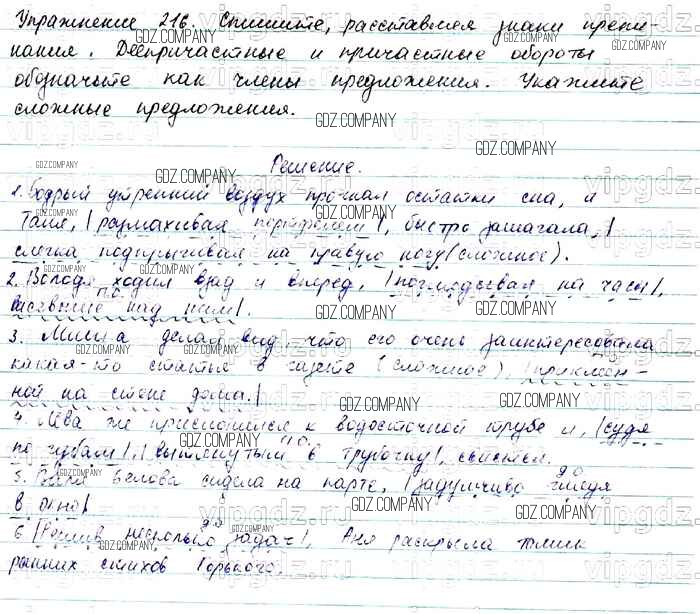 Упражнение 216. Спишите, расставляя знаки препи-
нания. Деепричастные и причастные обороты
обозначьте как члены предложения. Укажите
сложные предложения.
Решение.
1. Бодрый утренний воздух прогнал остатки сна, и
Таня, |размахивая портфелем|, быстро зашагала, |
слегка подпрыгивая на правую ногу (сложное).
2. Володя ходил взад и вперед, |поглядывая на часы|,
п.о.
висевшие над ним|.
3. Миша делал вид, что его очень заинтересовала
какая-то статья в газете (сложное), |приклеен-
ной на стене дома.|
4. Лёва же прислонился к водосточной трубе и, |судя
п.о.
по губам|, |вытянутым в трубочку|, свистел.
д.о
5. Белова сидела на парте, |задумчиво глядя
в окно|
д.о
6. |Решив несколько задач|, Аня раскрыла томик
ранних стихов Горького.
GDZ.COMPANY
vipgdz.ru